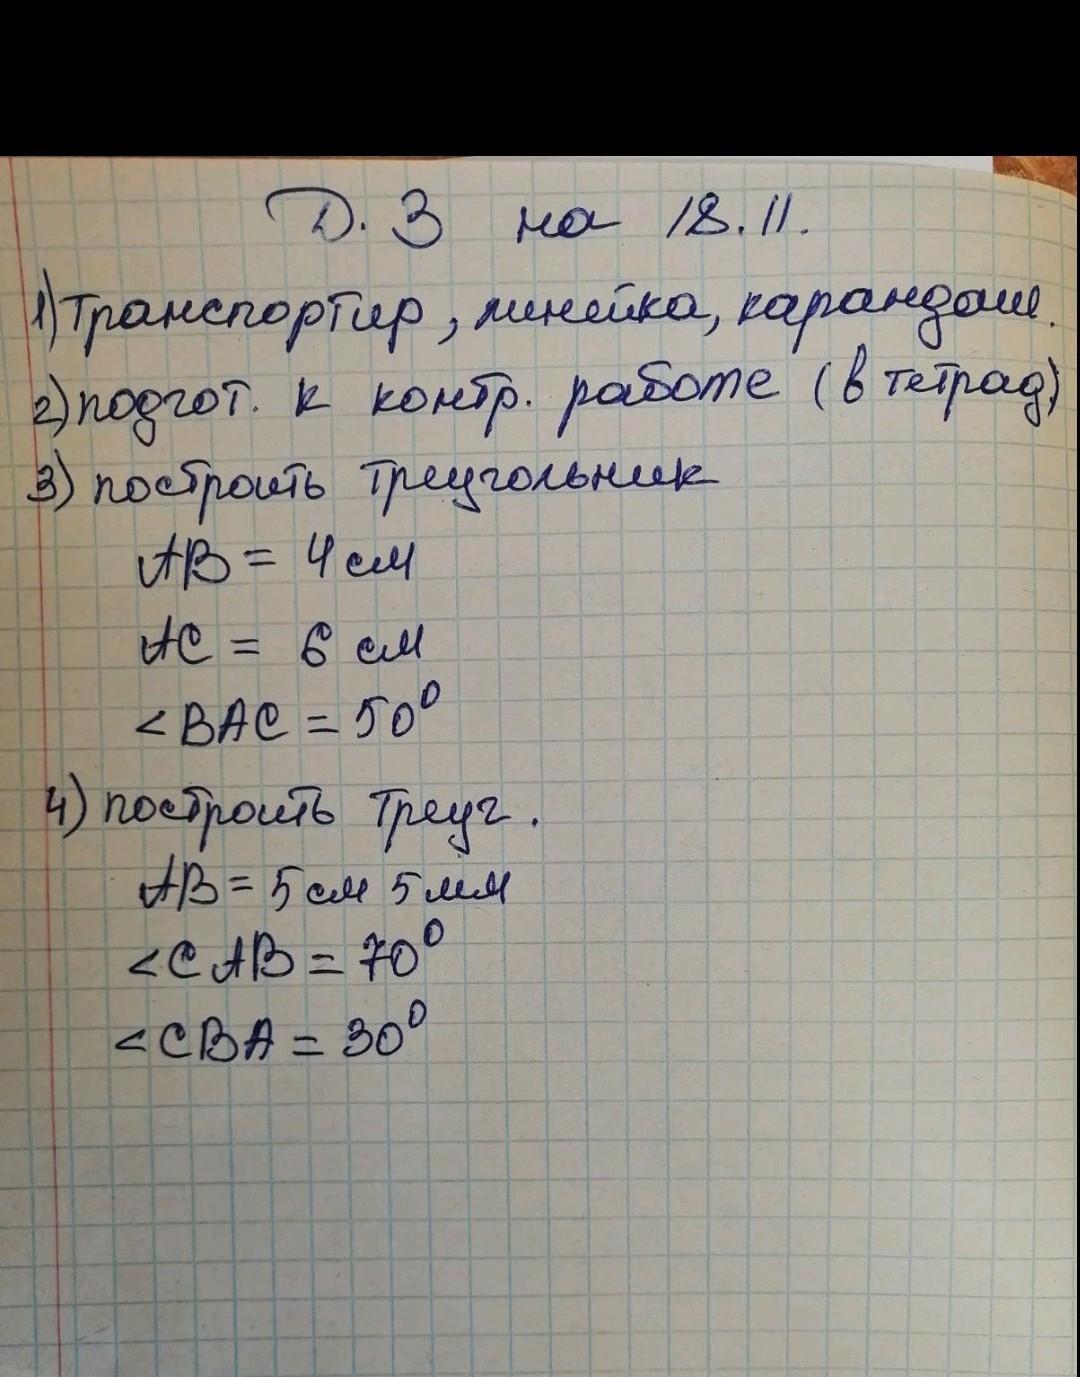 Д. З на 18.11.
1) Транспортир, линейка, карандаш.
2) подгот. к контр. работе (в тетрад)
3) построить треугольник
AB = 4 см
AC = 6 см
<BAC = 50⁰
4) построить треуг.
AB = 5 см 5 мм
<CAB = 70⁰
<CBA = 30⁰